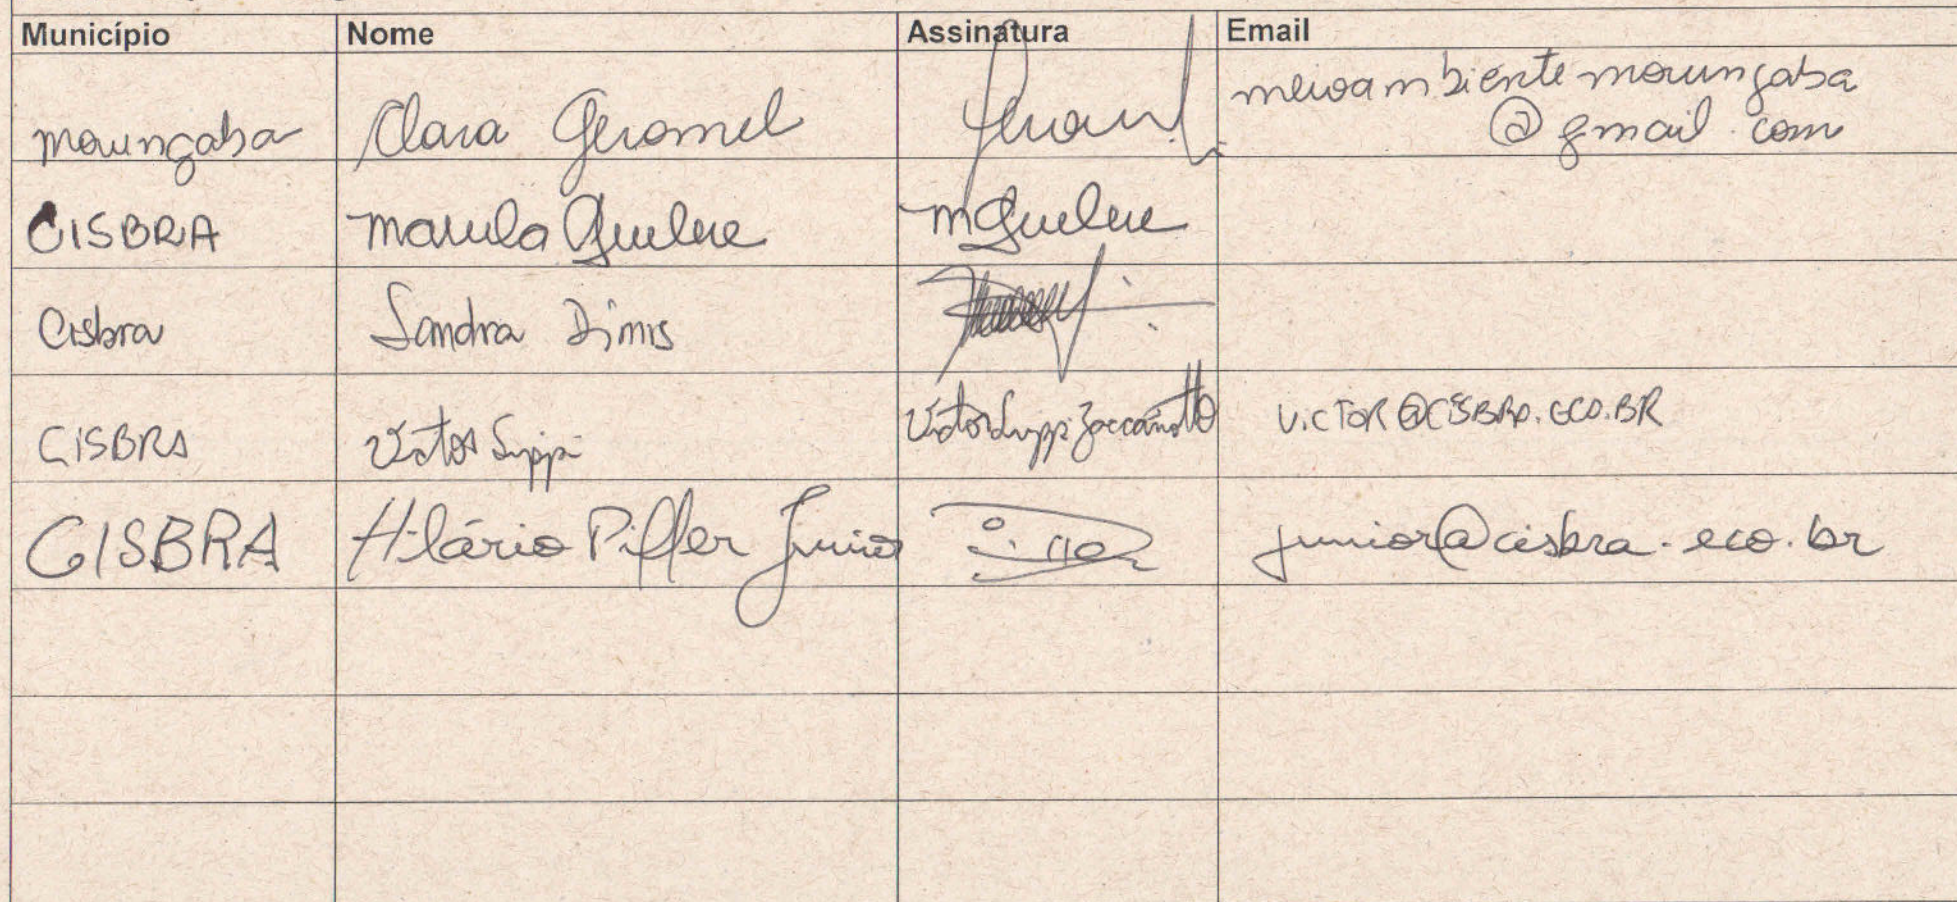 Município Nome Assinatura Email
Morungaba Clara Geromel meioambientemorungaba
@gmail.com
CISBRA
Cisbra Sandra Dinis
CISBRA Victor Luppi Victor Luppi Zaccariotto VICTOR@CISBRA.ECO.BR
CISBRA Hilário Piffer Junior junior@cisbra.eco.br